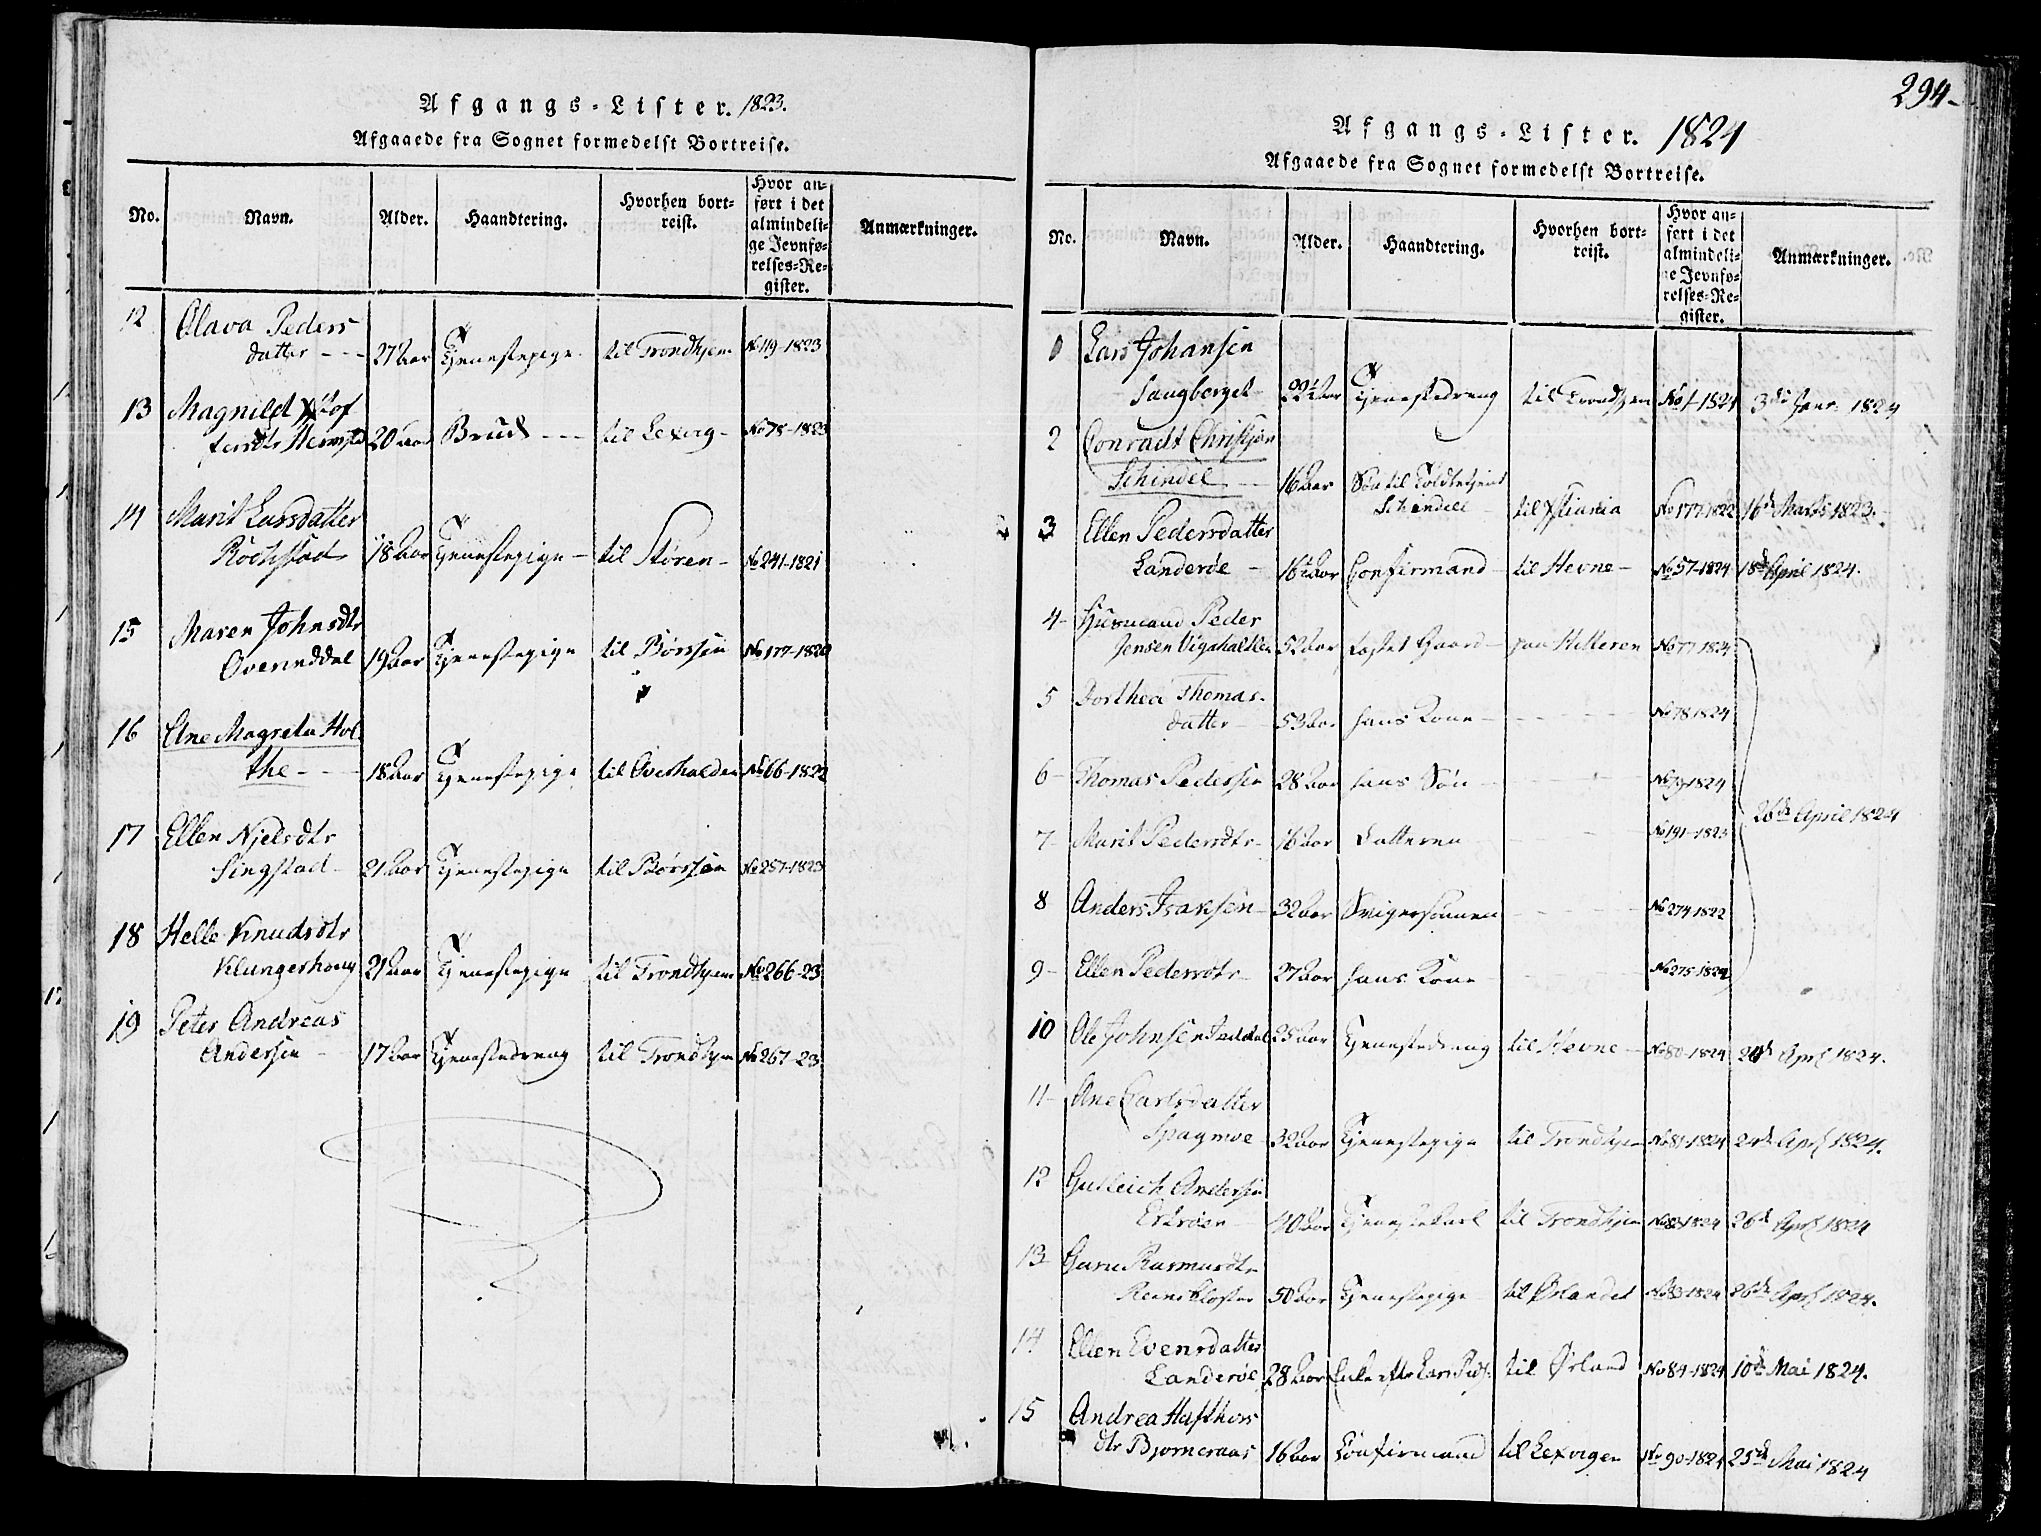 Afgangs-Lister. 1823.
Afgaaede fra Sognet formedelst Bortreise.
No. Navn. Alder. Haandtering. Hvorhen bortreist. Hvor anført i det almindelige Jevnførelses-Register. Anmærkninger.
12 Olava Peders
datter - - - 27 Aar Tjenestepige til Trondhjem No 119-1823
13 Magnild
20 Aar Brud - - - til Lexvig - No 78-1823
14 Marit Larsdatter
18 Aar Tjenestepige - til Støren - No 241-1821
15 Maren Johnsdtr
19 Aar Tjenestepige til Børssen No 177-1820
16 Ane Magreta Hol
the - - - 18 Aar Tjenestepige til Overhalden No 66-1822
17 Ellen Njelsdtr
Singstad 21 Aar Tjenestepige til Børssen No 257-1823
18 Helle Knudsdtr
Klungerhoug 21 Aar Tjenestepige til Trondhjem No 266-23
19 Peter Andreas
Andersen - 17 Aar Tjenestedreng til Trondhjem No 267-23
294-
Afgangs-Lister. 1824
Afgaaede fra Sognet formedelst Bortreise.
No. Navn. Alder. Haandtering. Hvorhen bortreist. Hvor anført i det almindelige Jevnførelses-Register. Anmærkninger.
1 Lars Johansen
Saugberget 22½ Aar Tjenestedreng til Trondhjem No 1-1824 3de Janr. 1824
2 Conradt Christjan
Schindel - 16 Aar Søn til
Schindell til Xstiania No 177-1822 16de Marts 1823.
3 Ellen Pedersdatter
Landerøe - 16½ Aar Confirmand til Hevne - No 57-1824 18de April 1824.
4- Huusmand Peder
Jensen 52 Aar fæstet Gaard - paa Hitteren No 77 1824
5 Dorthea Thomas-
datter - 53 Aar hans Kone - No 78 1824
6- Thomas Pedersen 28 Aar hans Søn No 79-1824
26de April 1824
7- Marit Pedersdtr- 16 Aar Datteren No 191-1823
8 Anders Isaksen - 32 Aar Svigersønnen No 274 1822
9- Ellen Pedersdtr - 27 Aar hans Kone No 275 1822
10 Ole Johnsen 25 Aar Tjenestedreng til Hevne - No 80-1824 24de Apr 1824.
11- Ane Carlsdatter
Spagmoe 32 Aar Tjenestepige til Trondhjem No 81-1824 24de Apr 1824.
12 Gulleich Andersen
40 Aar Tjenestekarl til Trondhjem No 82-1824 26de Apr 1824
13- Guru Rasmusdtr
Reinskloster 50 Aar Tjenestepige til Ørlandet No 83-1824 26de Apr 1824.
14 Ellen Evensdatter
Landerøe 28 Aar Enke efter Lars til Ørland No 84-1824 10de Mai 1824.
15 Andrea Hafthors
dtr Bjorneraas 16 Aar Confirmand til Lexvigen No 90-1824 25de Mai 1824